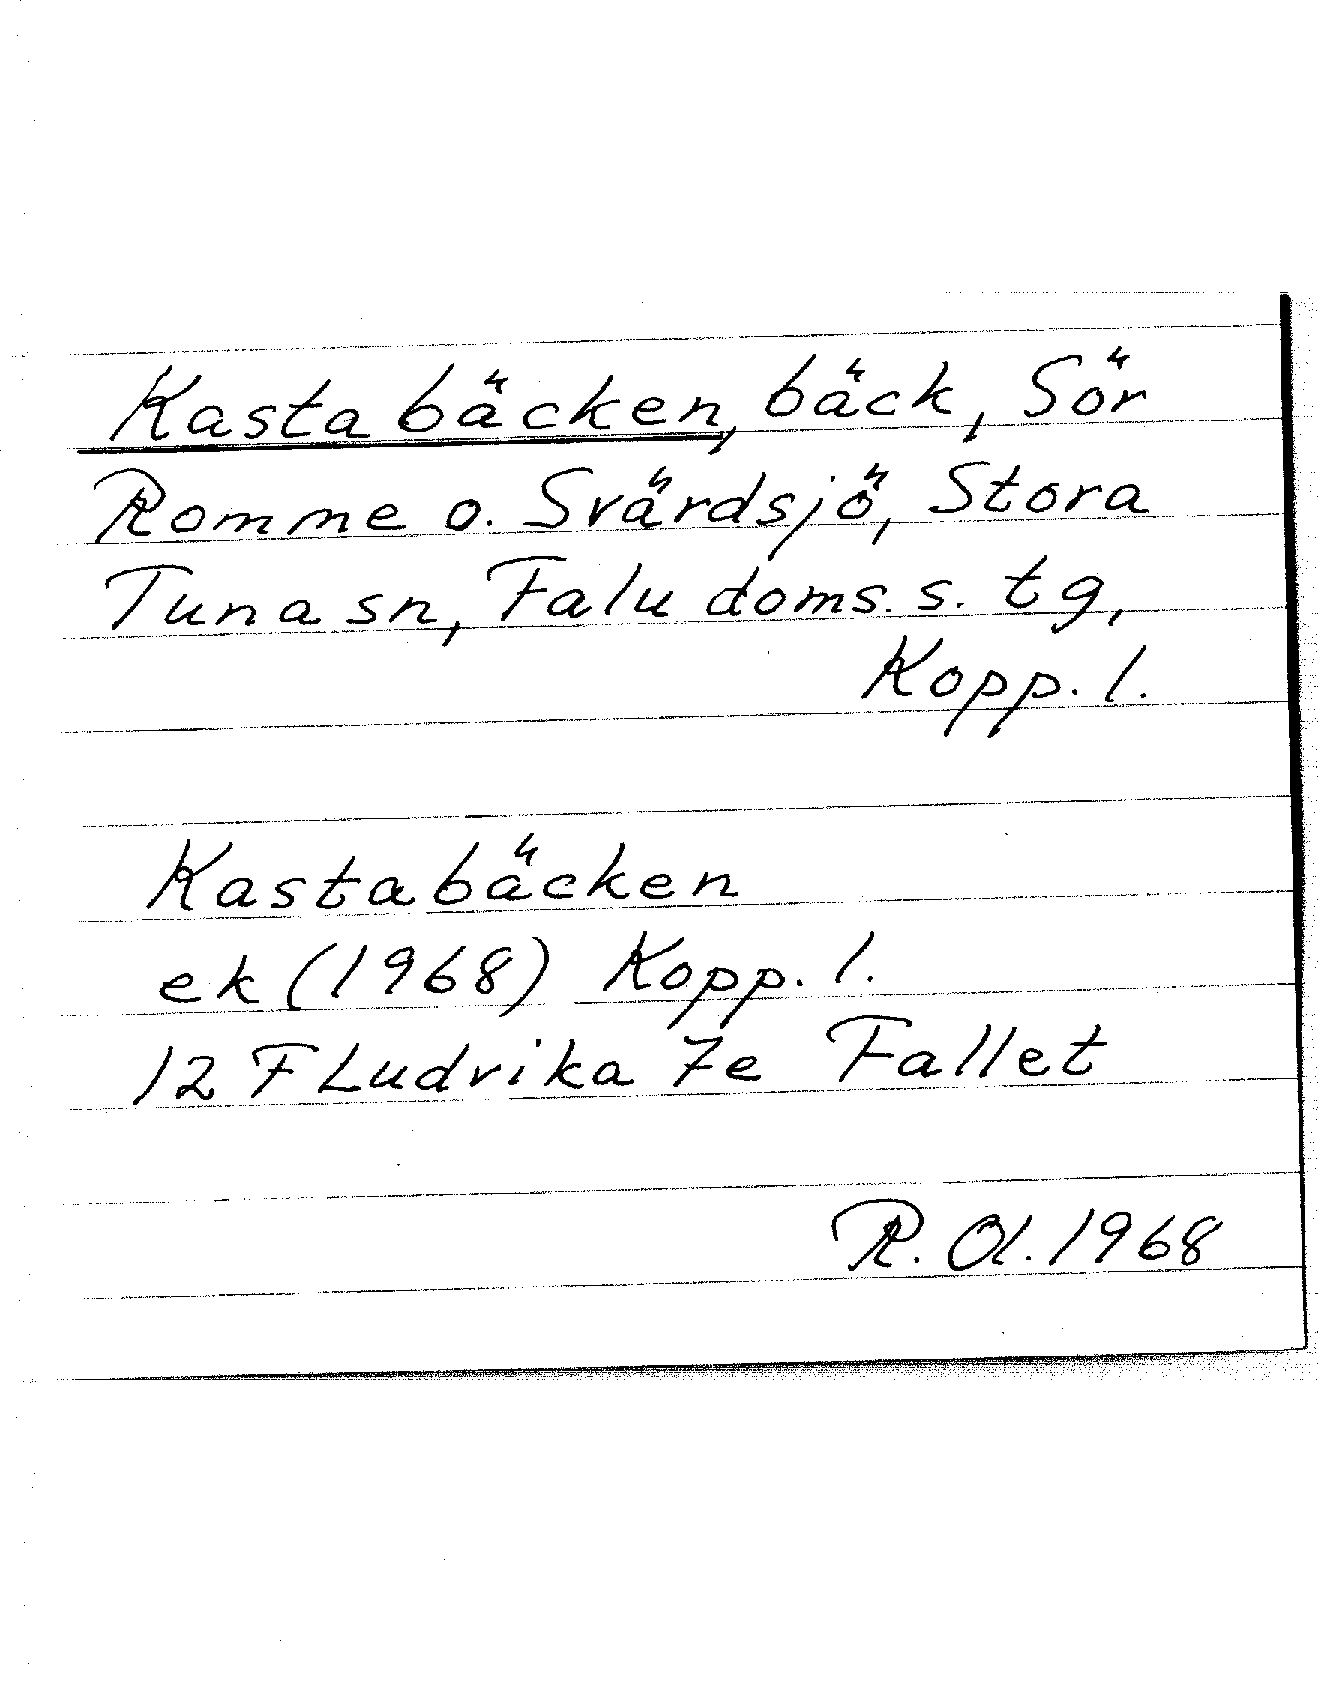 Kastabäcken, bäck, Sör
Romme o. Svärdsjö, Stora
Tuna sn, Falu doms. s. tg,
Kopp. l.
Kastabäcken
ek (1968) Kopp. l.
12 F Ludvika 7e Fallet
R. Ol. 1968